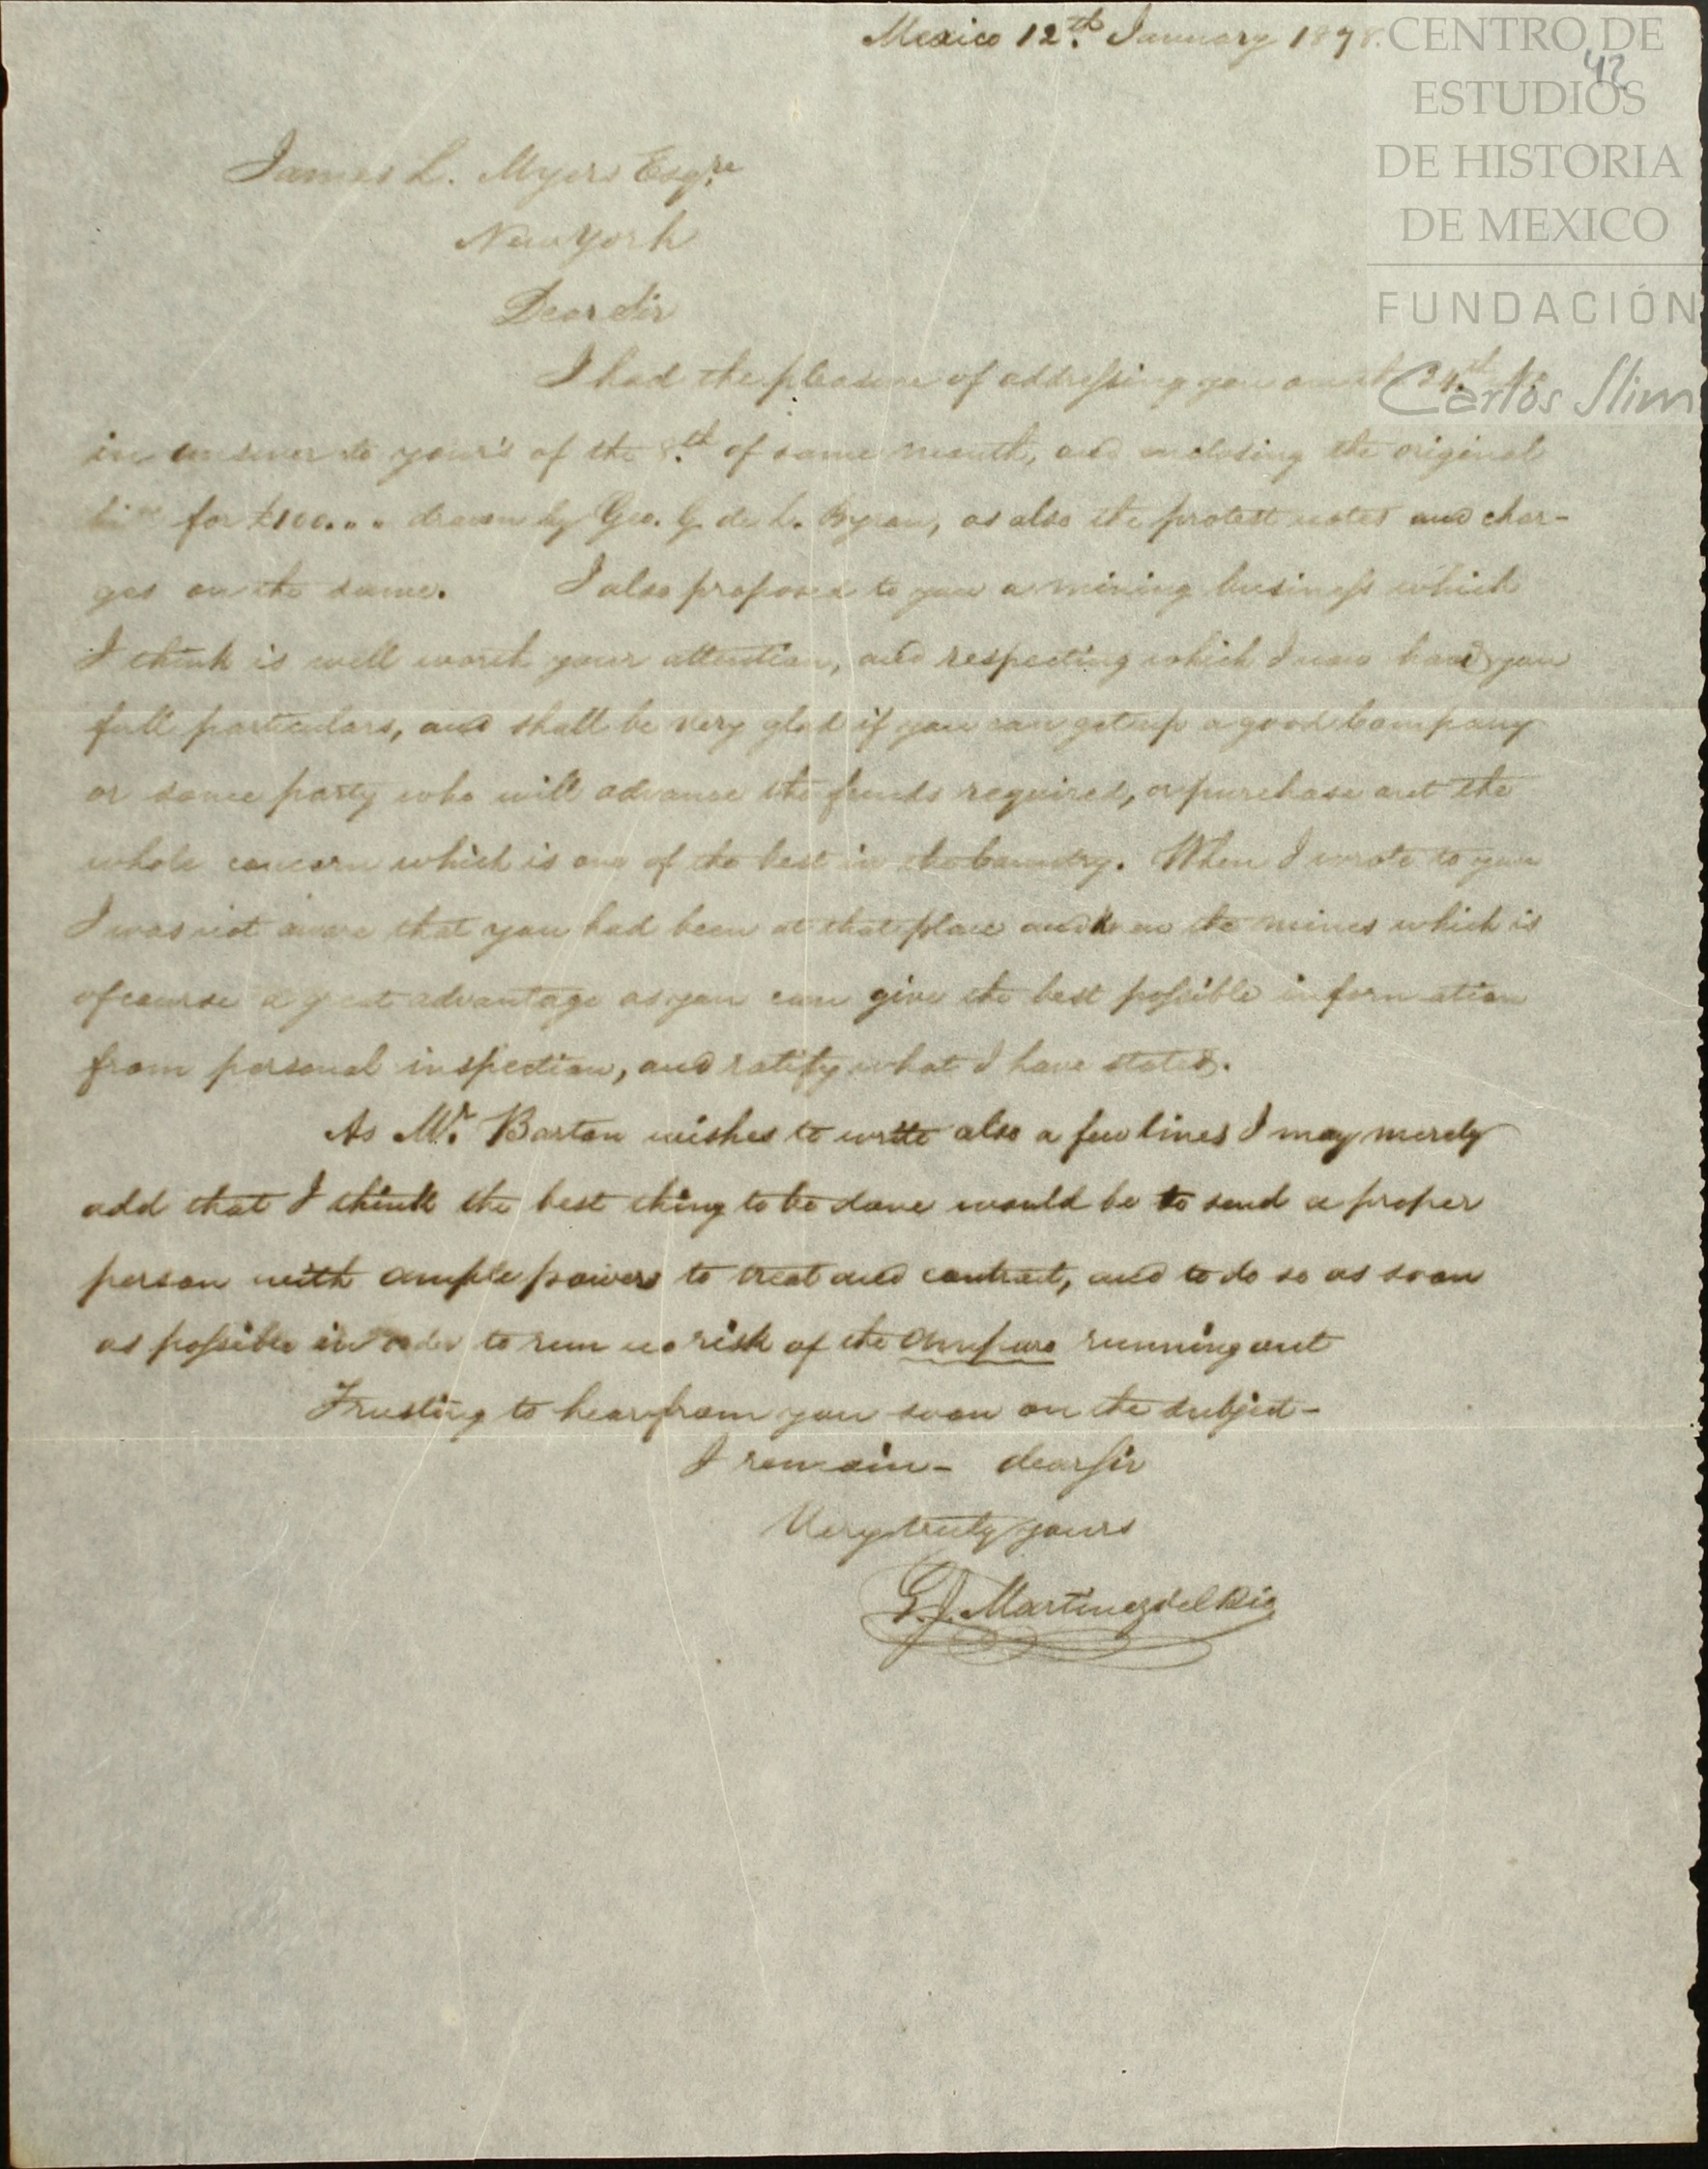 Mexico 12th. January 1898.
CENTRO DE
ESTUDIOS
DE HISTORIA
DE MEXICO
FUNDACIÓN
Carlos Slim
42
James L. Myers Esqre.
New York
Dear Sir
I had the pleasure of addressing you on
in answer to your's of the 8th. of same month, and enclosing the original
for £100... drawn by Geo. G. de L. Byron, as also the protest notes and char-
ges on the same. I also proposed to you a mining business which
I think is well worth your attention, and respecting which I now hand you
full particulars, and shall be very glad if you can get up a good Company
or some party who will advance the funds required, or purchase out the
whole concern which is one of the best in the Country. When I wrote to you
I was not aware that you had been at that place and on the mines which is
of course a great advantage as you can give the best possible information
from personal inspection, and ratify what I have stated.
As Mr. Barton wishes to write also a few lines I may merely
add that I think the best thing to be done would be to send a proper
person with ample powers to treat and contract, and to do so as soon
as possible in order to run no risk of the amparo running out
Trusting to hear from you soon on the subject-
I remain- dear sir
Very truly yours
G. J. Martinez del Rio